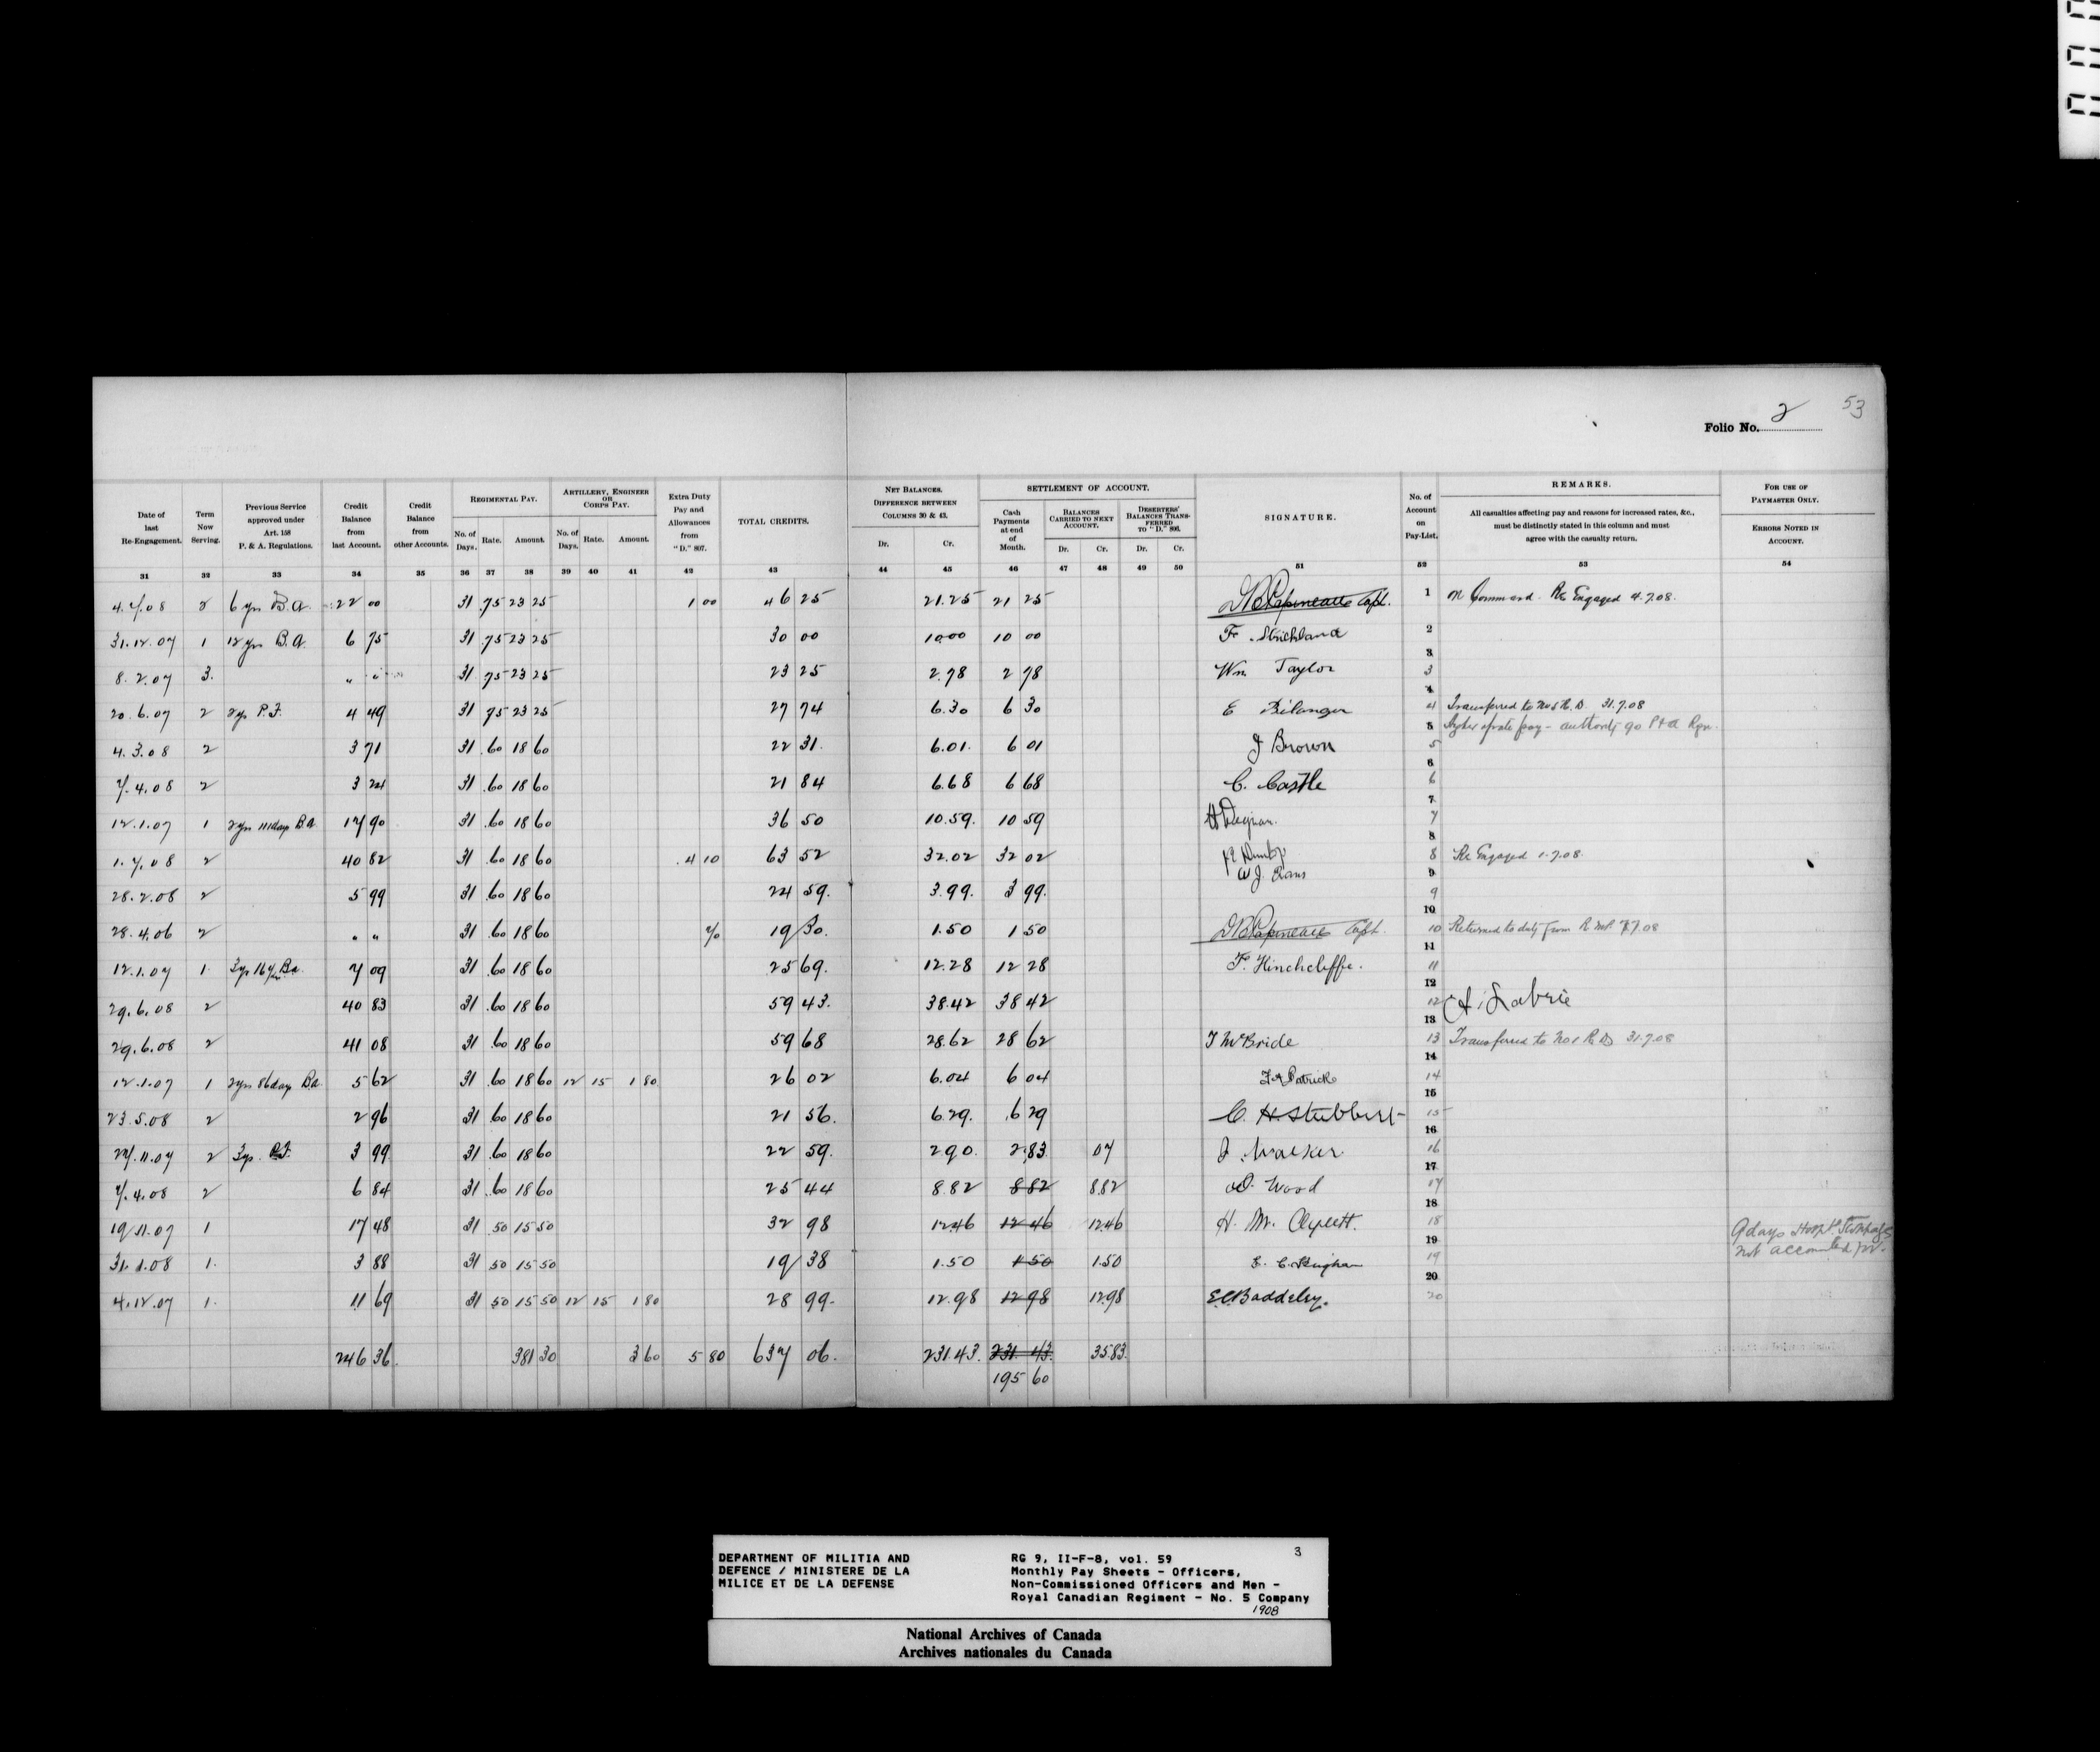 Folio No. 2
53
Date of last Re-Engagement. 31
Term Now Serving. 32
Previous Service approved under Art. 158 P. & A. Regulations. 33
Credit Balance from last Account. 34
Credit Balance from other Accounts. 35
REGIMENTAL PAY. No. of Days. 36 Rate. 37 Amount. 38
ARTILLERY, ENGINEER OR CORPS PAY. No. of Days. 39 Rate. 40 Amount. 41
Extra Duty Pay and Allowances from "D." 807. 42
TOTAL CREDITS. 43
NET BALANCES. DIFFERENCE BETWEEN COLUMNS 30 & 43. Dr. 44 Cr. 45
SETTLEMENT OF ACCOUNT.
Cash Payments at end of Month. 46
BALANCES CARRIED TO NEXT ACCOUNT. Dr. 47 Cr. 48
DESERTERS' BALANCES TRANSFERRED TO "D." 806. Dr. 49 Cr. 50
SIGNATURE. 51
No. of Account on Pay-List. 52
REMARKS. All casualties affecting pay and reasons for increased rates, &c., must be distinctly stated in this column and must agree with the casualty return. 53
FOR USE OF PAYMASTER ONLY. ERRORS NOTED IN ACCOUNT. 54
4.7.08 2 6 yrs B.A. 22 00 31 .75 23 25 1 00 46 25 21.25 21 25 D B Papineau Capt. 1 In Command. Re Engaged 4.7.08.
31.12.07 1 12 yrs B.A. 6 75 31 .75 23 25 30 00 10.00 10 00 F. Strickland 2
8.2.07 3. " " 31 75 23 25 23 25 2.78 2 78 Wm Taylor 3
20.6.07 2 2ys P.F. 4 49 31 75 23 25 27 74 6.30 6 30 E Bélanger 4 Transferred to No 5 R.D. 31.7.08
Higher rate pay - authority 90 P&A Rgns.
4.3.08 2 3 71 31 .60 18 60 22 31. 6.01. 6 01 J Brown 5
7.4.08 2 3 24 31 .60 18 60 21 84 6.68 6 68 C. Castle 6
12.1.07 1 2yrs 111 days B.A. 17 90 31 .60 18 60 36 50 10.59. 10 59 H Degnan. 7
1.7.08 2 40 82 31 .60 18 60 4 10 63 52 32.02 32 02 Dunlop 8 Re Engaged 1.7.08.
28.2.08 2 5 99 31 .60 18 60 24 59. 3.99. 3 99. W J. Evans 9
28.4.06 2 " " 31 .60 18 60 70 19 30. 1.50 1 50 D B Papineau Capt. 10 Returned to duty from 7.7.08
12.1.07 1. 7 09 31 .60 18 60 25 69. 12.28 12 28 F. Hinchcliffe. 11
29.6.08 2 40 83 31 .60 18 60 59 43. 38.42 38 42 12 A. Labrie
29.6.08 2 41 08 31 .60 18 60 59 68 28.62 28 62 T McBride 13 Transferred to No 1 R D 31.7.08
12.1.07 1 2yrs 86 days B.A. 5 62 31 .60 18 60 12 15 1 80 26 02 6.04 6 04 Patrick 14
23.5.08 2 2 96 31 .60 18 60 21 56. 6.29. 6 29 C. H. Stubbert 15
27.11.07 2 3yrs. P.F. 3 99 31 .60 18 60 22 59. 2 90. 2.83 07 J. Walker 16
7.4.08 2 6 84 31 .60 18 60 25 44 8.82 8 82 8.82 Wood 17
19.11.07 1 17 48 31 50 15 50 32 98 12.46 12 46 12.46 H. M. Clyett. 18 9 days Hosp'l Stoppages
not accounted for.
31.1.08 1. 3 88 31 50 15 50 19 38 1.50 1 50 1.50 E. C. Bingham 19
4.12.07 1. 11 69 31 50 15 50 12 15 1 80 28 99. 12.98 12 98 12.98 E.C. Baddeley. 20
246 36. 381 30 3 60 5 80 637 06. 231.43. 231 43. 35.83.
195 60
DEPARTMENT OF MILITIA AND
DEFENCE / MINISTERE DE LA
MILICE ET DE LA DEFENSE
RG 9, II-F-8, vol. 59 3
Monthly Pay Sheets - Officers,
Non-Commissioned Officers and Men -
Royal Canadian Regiment - No. 5 Company
1908
National Archives of Canada
Archives nationales du Canada